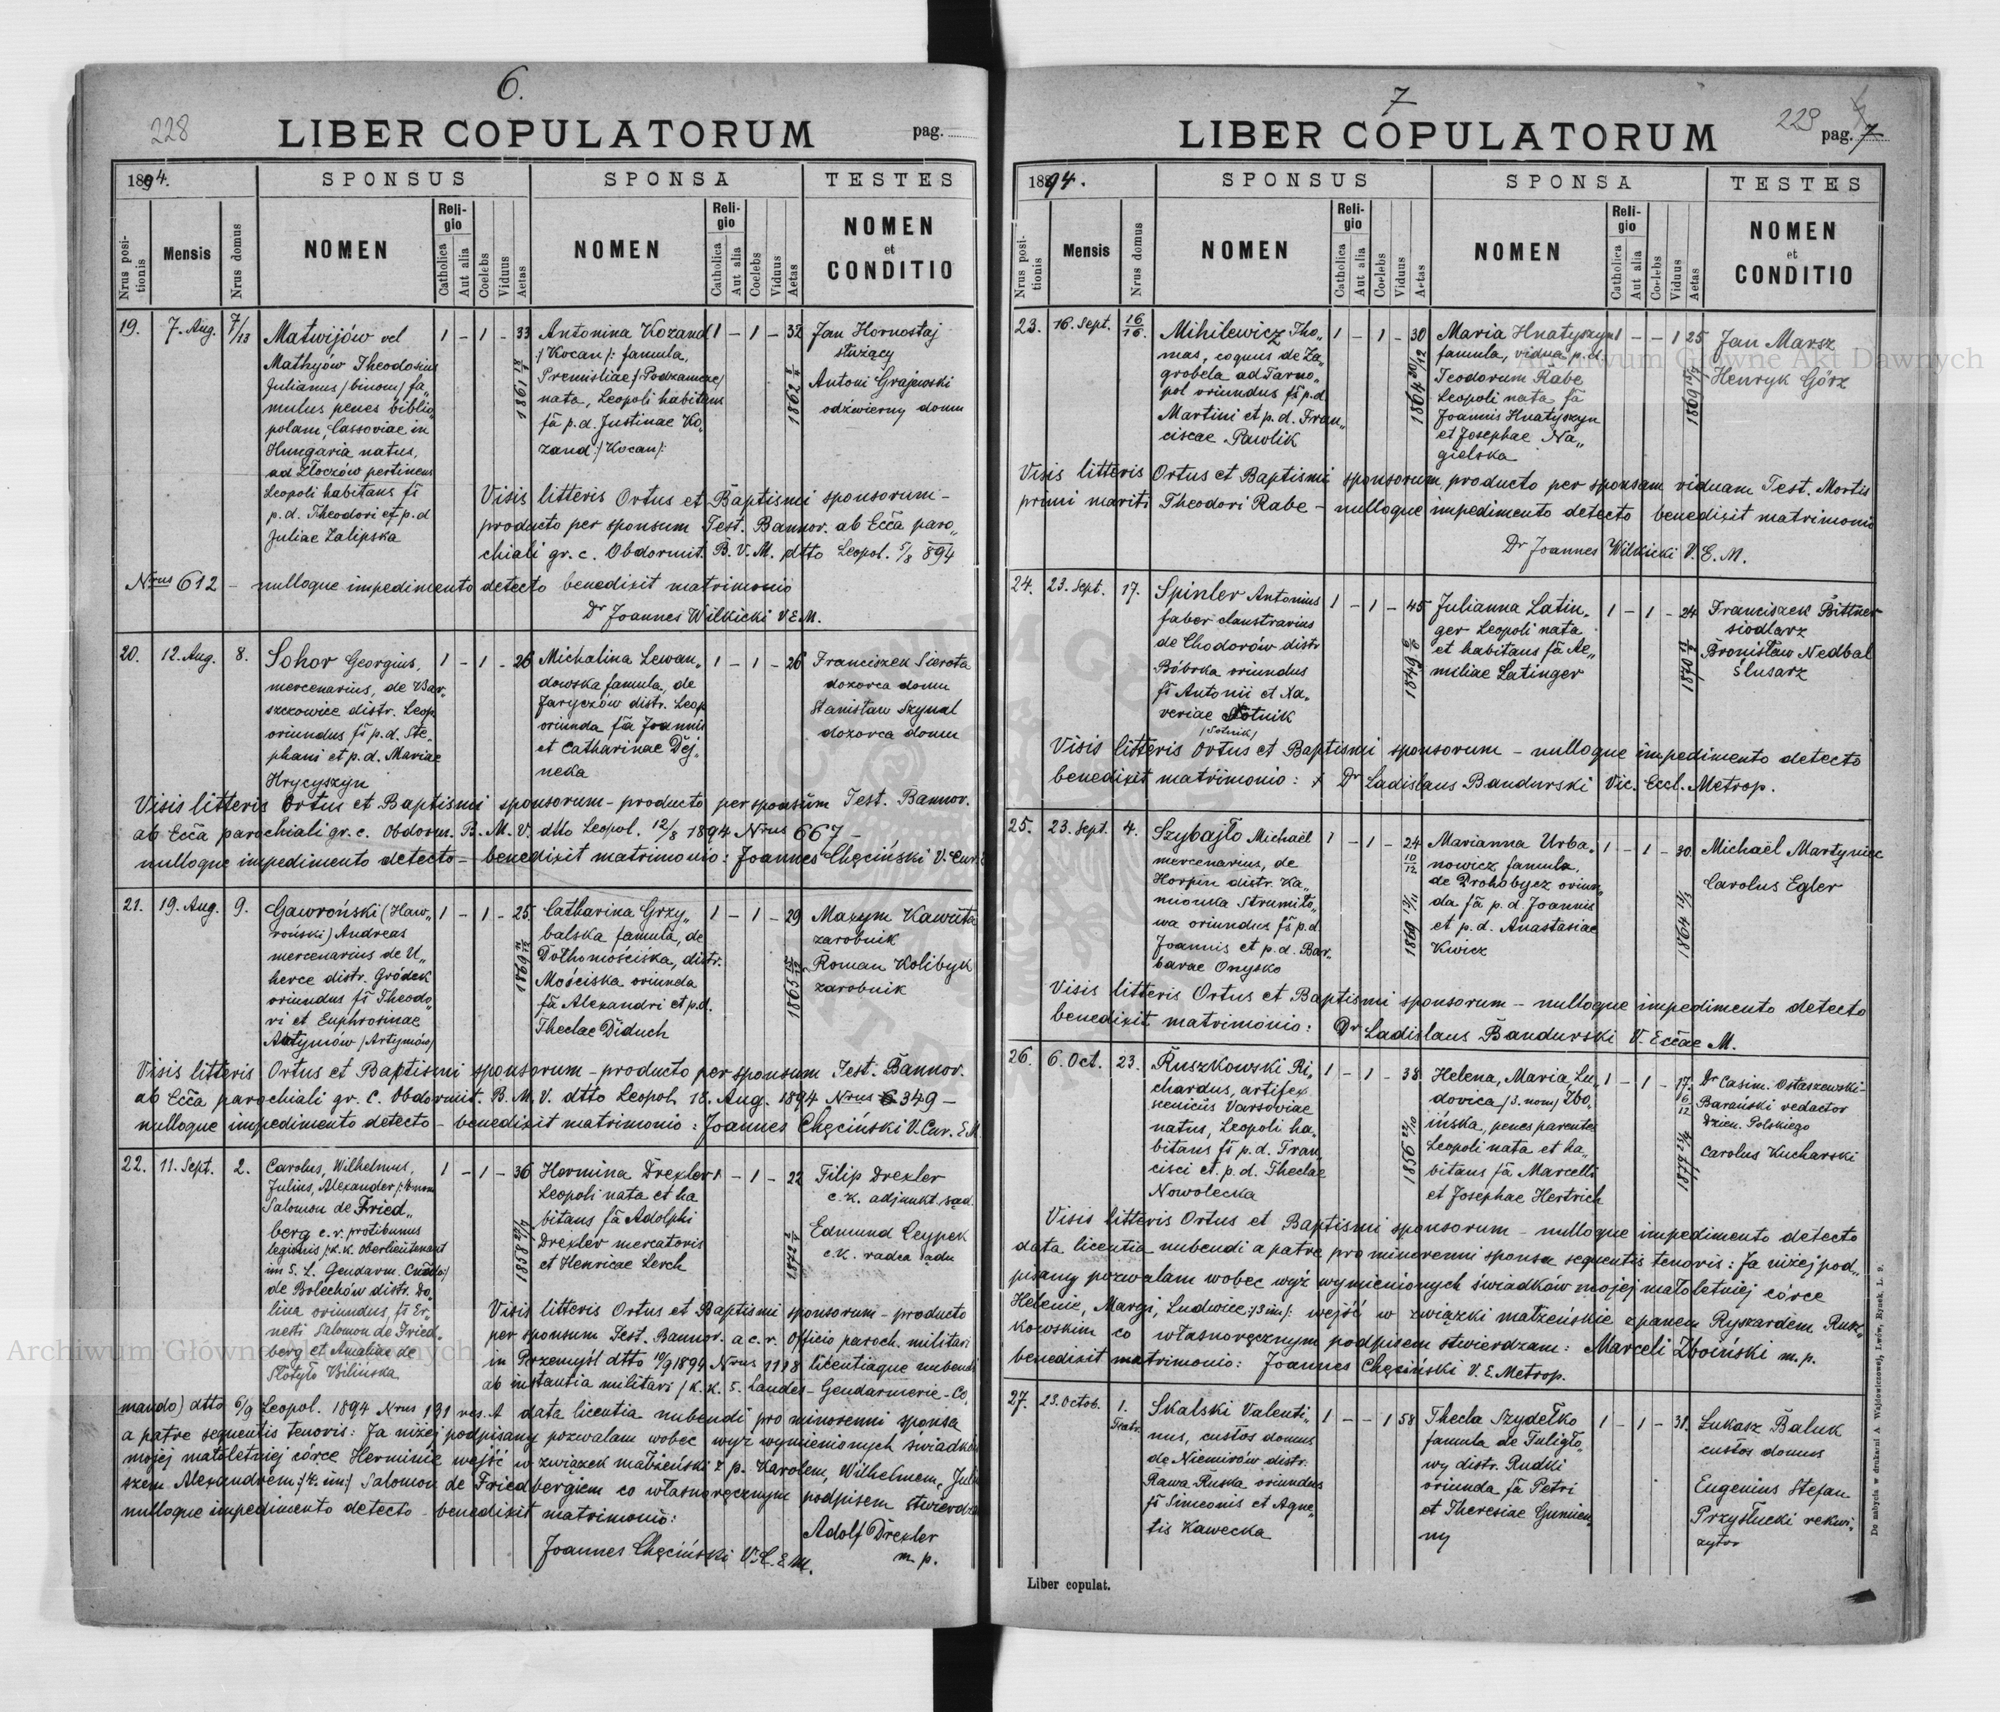 6.
228
LIBER COPULATORUM
pag.
1894.
SPONSUS
SPONSA
TESTES
Nrus positionis
Mensis
Nrus domus
NOMEN
Religio
Catholica
Aut alia
Coelebs
Viduus
Aetas
NOMEN
Religio
Catholica
Aut alia
Coelebs
Viduus
Aetas
NOMEN
et
CONDITIO
19. 7. Aug. 7/13
Matwijów vel
Mathyów Theodosius
Julianus /binom/ fa„
mulus penes biblio„
polam, Cassoviae in
Hungaria natus,
ad Złoczów pertinens
Leopoli habitans fs
p. d. Theodori et p. d
Juliae Zalipska
1 – 1 – 33
Antonina Kozand
:/Kocan/: famula,
Premisliae /Podzamcze/
nata, Leopoli habitans
fa p. d. Justinae Ko„
zand :/Kocan/:
1 – 1 – 32
Jan Hornostaj
służący
Antoni Grajewski
odźwierny domu
Visis litteris Ortus et Baptismi sponsorum –
producto per sponsum Test. Bannor. ab Ecca paro„
chiali gr. c. Obdormit. B. V. M. dtto Leopol. 5/8 894
Nrus 612 – nulloque impedimento detecto benedixit matrimonio
Dr Joannes Wilkicki V. E. M.
20. 12. Aug. 8.
Sohor Georgius,
mercenarius, de Bar„
szczowice distr. Leop.
oriundus fs p. d. Ste„
phani et p. d. Mariae
Hrycyszyn
1 – 1 – 26
Michalina Lewan„
dowska famula, de
Jaryczów distr. Leop
oriunda fa Joannis
et Catharinae Dej„
neka
1 – 1 – 26
Franciszek Sierota
dozorca domu
Stanisław Szynal
dozorca domu
Visis litteris Ortus et Baptismi sponsorum – producto per sponsum Test. Bannor.
ab Ecca parochiali gr. c. Obdorm. B. M. V. dtto Leopol. 12/8 1894 Nrus 667 –
nulloque impedimento detecto – benedixit matrimonio: Joannes Chęciński V. Cur. E
21. 19. Aug. 9.
Gawroński (Haw„
roński) Andreas
mercenarius de U„
herce distr. Gródek
oriundus fs Theodo„
ri et Euphrosinae
Artymów /Artymów/
1 – 1 – 25
Catharina Grzy„
balska famula, de
Dołhomościska, distr.
Mościska oriunda
fa Alexandri et p. d.
Theclae Diduch
1 – 1 – 29
Maxym Kawuta
zarobnik
Roman Kolibyk
zarobnik
Visis litteris Ortus et Baptismi sponsorum – producto per sponsum Test. Bannor.
ab Ecca parochiali gr. c. Obdormit. B. M. V. dtto Leopol. 18. Aug. 1894 Nrus 349 –
nulloque impedimento detecto – benedixit matrimonio: Joannes Chęciński V. Cur. E. M.
22. 11. Sept. 2.
Carolus, Wilhelmus,
Julius, Alexander /:4nom
Salomon de Fried„
berg c. r. protibunus
legionis /:k. k. Oberlieutenant
im 5. L. Gendarm. Cmdo:/
de Bolechów distr. Do„
lina oriundus, fs Er„
nesti Salomon de Fried„
berg et Amaliae de
Słotyło Bilińska
1 – 1 – 36
1858 27/9
Hermina Drexler
Leopoli nata et ha
bitans fa Adolphi
Drexler mercatoris
et Henricae Lerch
1 – 1 – 22
Filip Drexler
c. k. adjunkt sąd.
Edmund Leypek
c. k. radca sądu
Visis litteris Ortus et Baptismi sponsorum – producto
per sponsum Test. Bannor. a c. r. Officio paroch. militari
in Przemyśl dtto 10/9 1894 Nrus 1118 licentiaque nubendi
ab instantia militari / k. k. 5. Landes – Gendarmerie – Co„
mando) dtto 6/9 Leopol. 1894 Nrus 131 res. A data licentia nubendi pro minorenni sponsa
a patre sequentis tenoris: Ja niżej podpisany pozwalam wobec wyż wymienionych świadków
mojej małoletniej córce Herminie wejść w związek małżeński z p. Karolem, Wilhelmem, Juliu
szem Alexandrem :/4. im:/ Salomon de Friedbergiem co własnoręcznym podpisem stwierdzam
nulloque impedimento detecto – benedixit matrimonio:
Adolf Drexler
m. p.
Joannes Chęciński V. C. E. M.
7
229
LIBER COPULATORUM
pag. 7
1894.
SPONSUS
SPONSA
TESTES
Nrus positionis
Mensis
Nrus domus
NOMEN
Religio
Catholica
Aut alia
Coelebs
Viduus
Aetas
NOMEN
Religio
Catholica
Aut alia
Coelebs
Viduus
Aetas
NOMEN
et
CONDITIO
23. 16. Sept. 16/16.
Mihilewicz Tho„
mas, coquus de Za„
grobela ad Tarno„
pol oriundus fs p. d.
Martini et p. d. Fran„
ciscae Pawlik
1 – 1 – 30
1864 20/12
Maria Hnatyszyn
famula, vidua p. d.
Teodorum Rabe
Leopoli nata fa
Joannis Hnatyszyn
et Josephae Na„
gielska
1 – – 1 25
Jan Marsz
Henryk Görz
Visis litteris Ortus et Baptismi sponsorum, producto per sponsam viduam Test. Mortis
primi mariti Theodori Rabe – nulloque impedimento detecto benedixit matrimonio
Dr Joannes Wilkicki V. E. M.
24. 23. Sept. 17.
Spinler Antonius
faber claustrarius
de Chodorów distr
Bóbrka oriundus
fs Antonii et Xa„
veriae Sotnik
/Sotnik/
1 – 1 – 45
Julianna Latin„
ger Leopoli nata
et habitans fa Ae„
miliae Latinger
1 – 1 – 24
Franciszek Bittner
siodlarz
Bronisław Nedbal
ślusarz
Visis litteris Ortus et Baptismi sponsorum – nulloque impedimento detecto
benedixit matrimonio: + Dr Ladislaus Bandurski Vic. Eccl. Metrop.
25. 23. Sept. 4.
Szybajło Michaël
mercenarius, de
Horpin distr. Ka„
mionka Strumiło„
wa oriundus fs p. d.
Joannis et p. d. Bar„
barae Onysko
1 – 1 – 24
10/12
Marianna Urba„
nowicz famula,
de Drohobycz oriun„
da fa p. d. Joannis
et p. d. Anastasiae
Kwicz
1 – 1 – 30.
Michaël Martyniec
Carolus Egler
Visis litteris Ortus et Baptismi sponsorum – nulloque impedimento detecto
benedixit matrimonio: Dr Ladislaus Bandurski V. Eccae M.
26. 6. Oct. 23.
Ruszkowski Ri„
chardus, artifex
scenicus Varsoviae
natus, Leopoli ha„
bitans fs p. d. Fran„
cisci et. p. d. Theclae
Nowolecka
1 – 1 – 38
1856 22/10
Helena, Maria Lu„
dovica /3. nom/ Zbo„
ińska, penes parentes
Leopoli nata et ha„
bitans fa Marcelli
et Josephae Hertrich
1 – 1 – 17.
6/12
Dr Casim. Ostaszewski-
Barański redactor
Dzien. Polskiego
Carolus Kucharski
Visis litteris Ortus et Baptismi sponsorum – nulloque impedimento detecto
data licentia nubendi a patre pro minorenni sponsa sequentis tenoris: Ja niżej pod„
pisany pozwalam wobec wyż wymienionych świadków mojej małoletniej córce
Helenie, Maryi, Ludwice :/3 im/: wejść w związki małżeńskie z panem Ryszardem Rusz„
kowskim co własnoręcznym podpisem stwierdzam: Marceli Zboiński m. p.
benedixit matrimonio: Joannes Chęciński V. E. Metrop.
27. 23. Octob. 1.
Teatr.
Skalski Valenti„
nus, custos domus
de Niemirów distr.
Rawa Ruska oriundus
fs Simeonis et Agne„
tis Kawecka
1 – – 1 58
Thecla Szydełko
famula de Tuligło„
wy distr. Rudki
oriunda fa Petri
et Theresiae Gumien„
ny
1 – 1 – 31.
Łukasz Baluk
custos domus
Eugenius Stefan
Przysłucki rekwi„
zytor
Liber copulat.
Do nabycia w drukarni A Wajdowiczowej, Lwów, Rynek L. 9.
Archiwum Główne Akt Dawnych
Archiwum Główne Akt Dawnych